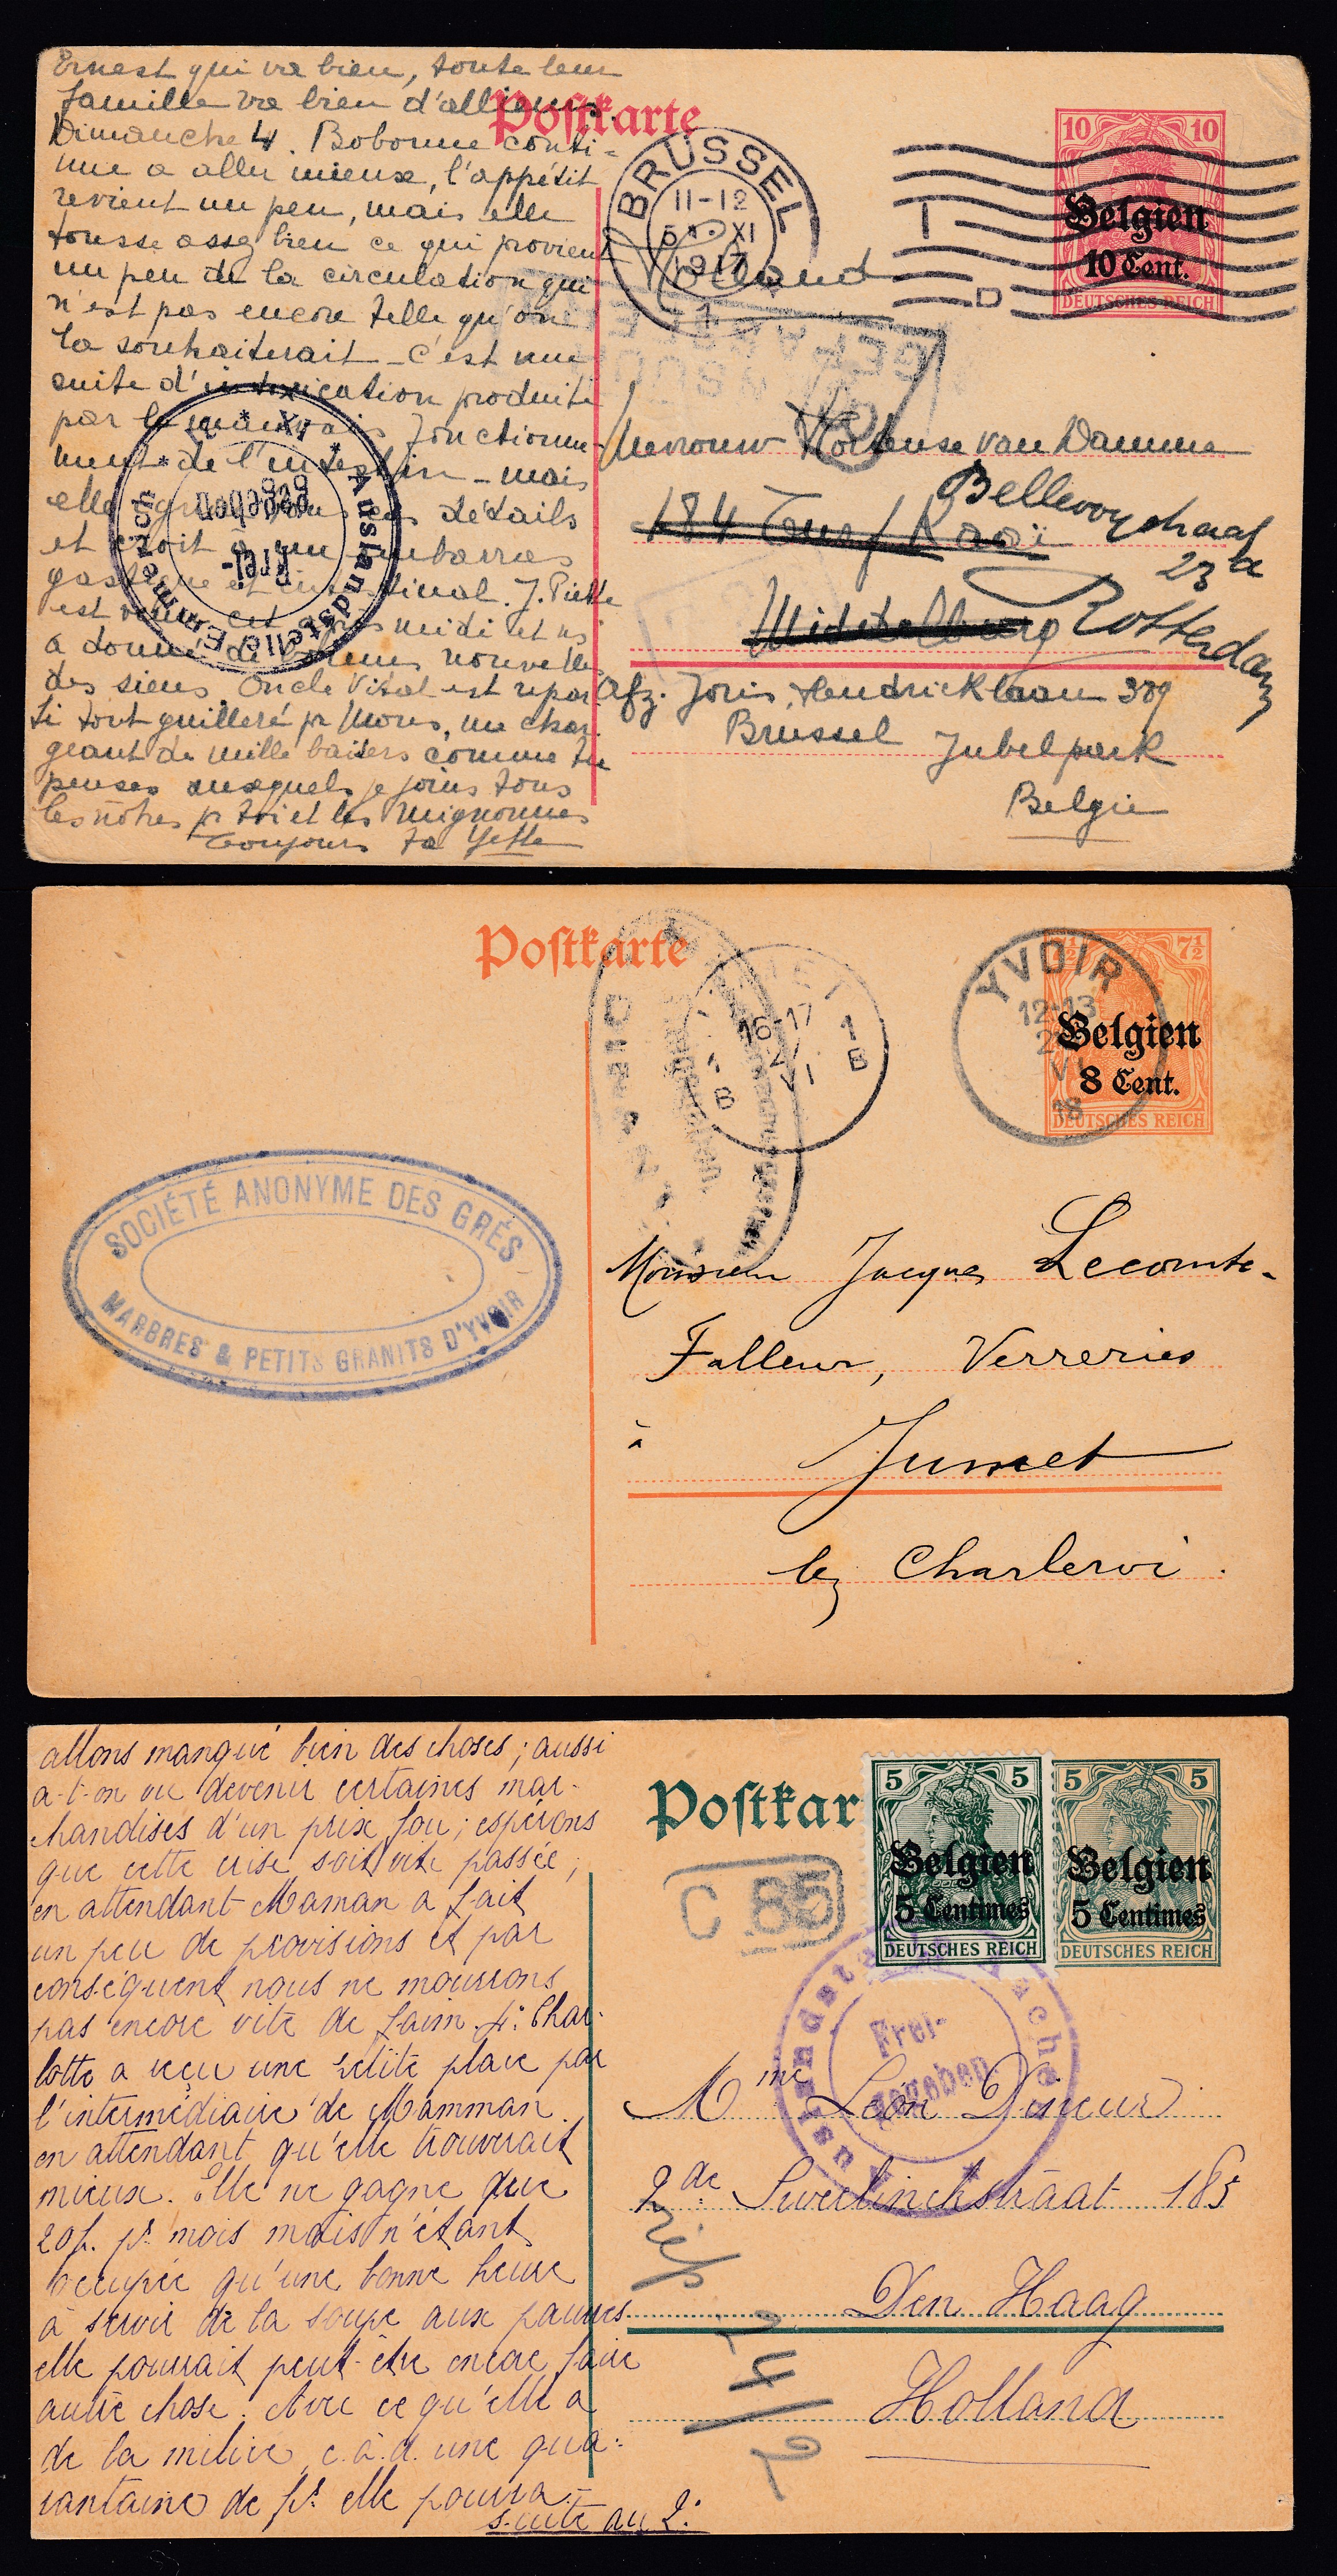 Ernest qui va bien, toute leur
famille va bien d'ailleurs.
Dimanche 4. Bobonne conti-
nue a aller mieux, l'appétit
revient un peu, mais elle
tousse assez bien ce qui provient
un peu de la circulation qui
n'est pas encore telle qu'on
la souhaiterait - c'est une
suite d'intoxication produite
par le mauvais fonctionne-
ment de l'intestin - mais
elle ignore tous ces détails
et croit à un embarras
gastrique et intestinal. J. Piette
est venu cet après midi et ns
a donné de bonnes nouvelles
des siens. Oncle Vital est repar-
ti tout guilleré pr Mons, me char-
geant de mille baisers comme tu
penses auxquels je joins tous
les nôtres pr toi et les mignonnes
Toujours ta Yette
Auslandstelle Emmerich
Frei-
gegeben
Postkarte
BRÜSSEL
11-12
5 XI
1917
1
10 10
Belgien
10 Cent.
DEUTSCHES REICH
Holland
Mevrouw Hortense van Damme
184 Kaai
Bellevoystraat
23a
Middelburg
Rotterdam
Afz. Joris, Hendricklaan 389
Brussel Jubelpark
Belgie
Postkarte
16-17
VI
1 1
B B
YVOIR
12-13
VI
18
7½ 7½
Belgien
8 Cent.
DEUTSCHES REICH
SOCIÉTÉ ANONYME DES GRÉS
MARBRES & PETITS GRANITS D'YVOIR
Monsieur Jacques Lecomte-
Falleur, Verreries
à Jumet
lez Charleroi.
allons manqué bien des choses; aussi
a-t-on vu devenir certaines mar-
chandises d'un prix fou; espérons
que cette crise soit vite passée;
en attendant Maman a fait
un peu de provisions et par
conséquent nous ne mourrons
pas encore vite de faim. 4° Char-
lotte a reçu une petite place par
l'intermédiaire de Mamman
en attendant qu'elle trouverait
mieux. Elle ne gagne que
20f. pr mois mais n'étant
occupée qu'une bonne heure
à servir de la soupe aux pauvres
elle pourrait peut-être encore faire
autre chose. Avec ce qu'elle a
de la milice, c.à.d. une qua-
rantaine de frs elle pourra
suite au 2°
Postkar
5 5
Belgien
5 Centimes
DEUTSCHES REICH
5 5
Belgien
5 Centimes
DEUTSCHES REICH
C 85
Auslandstelle Aachen
Frei-
gegeben
Mme Léon Dineur
2de Sweelinckstraat 185
Den Haag
Holland